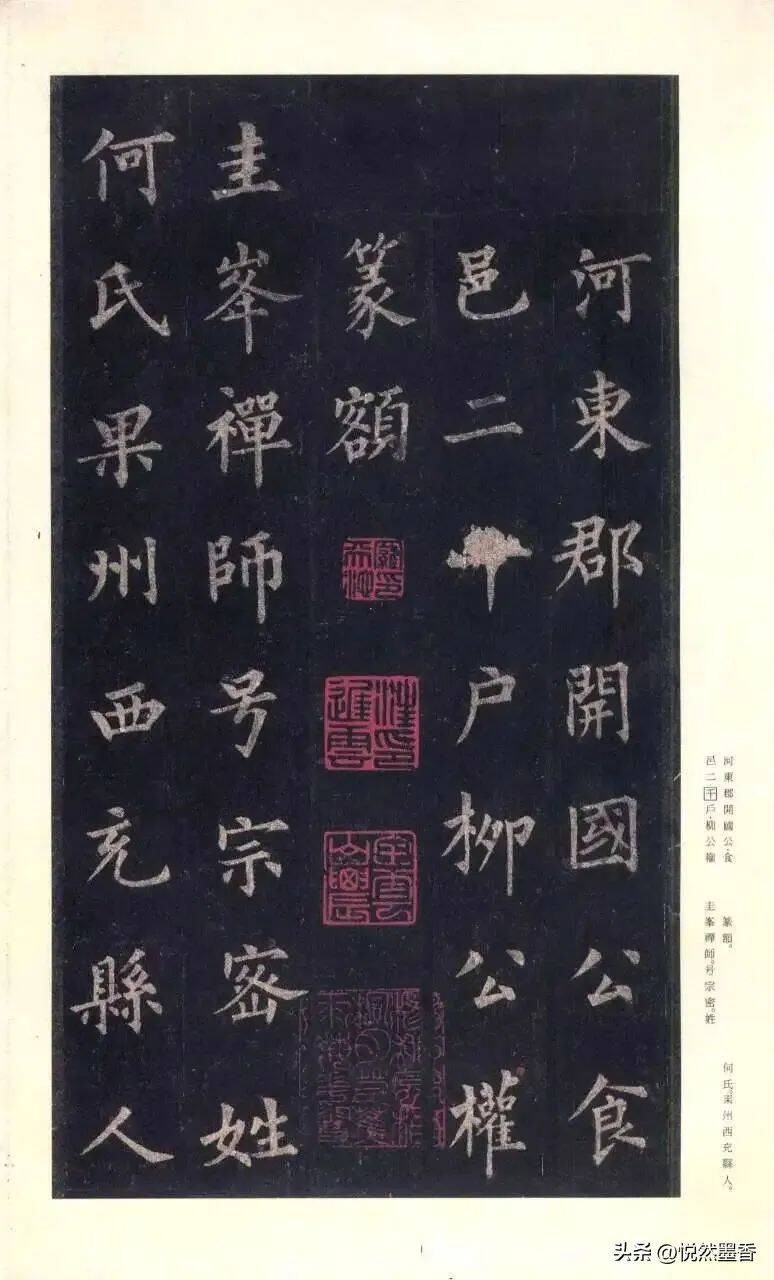 河東郡開國公食
邑二千户柳公權
篆額
圭峯禪師号宗密姓
何氏果州西充縣人
河東郡開國公·食
邑二千戶·柳公權
篆額。
圭峯禪師。号宗密。姓
何氏。果州西充縣人。
1
头条 @悦然墨香